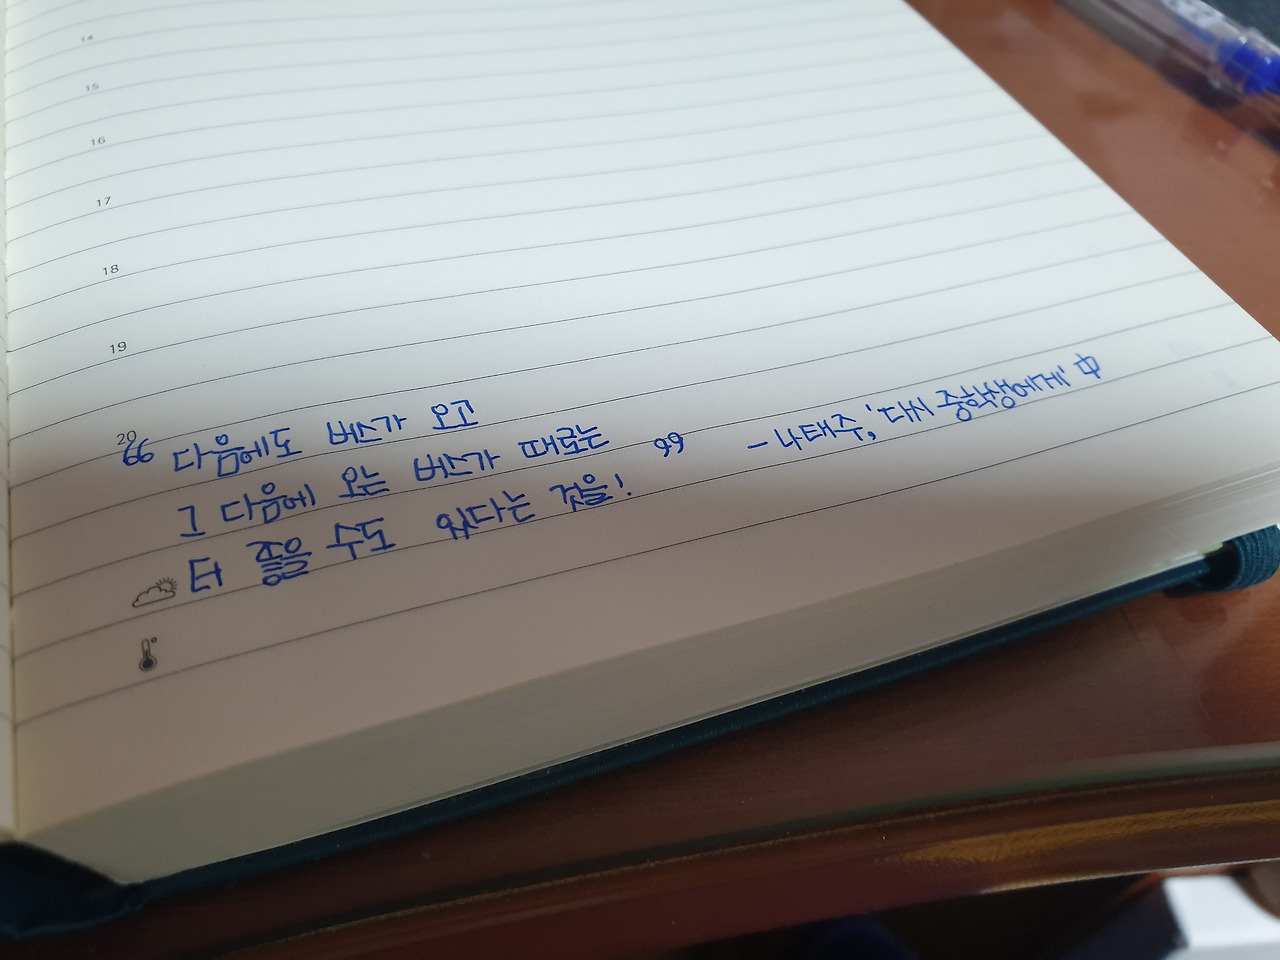 14
15
16
17
18
19
20
“ 다음에도 버스가 오고
그 다음에 오는 버스가 때로는
더 좋을 수도 있다는 것을! ” - 나태주, '다시 중학생에게' 中